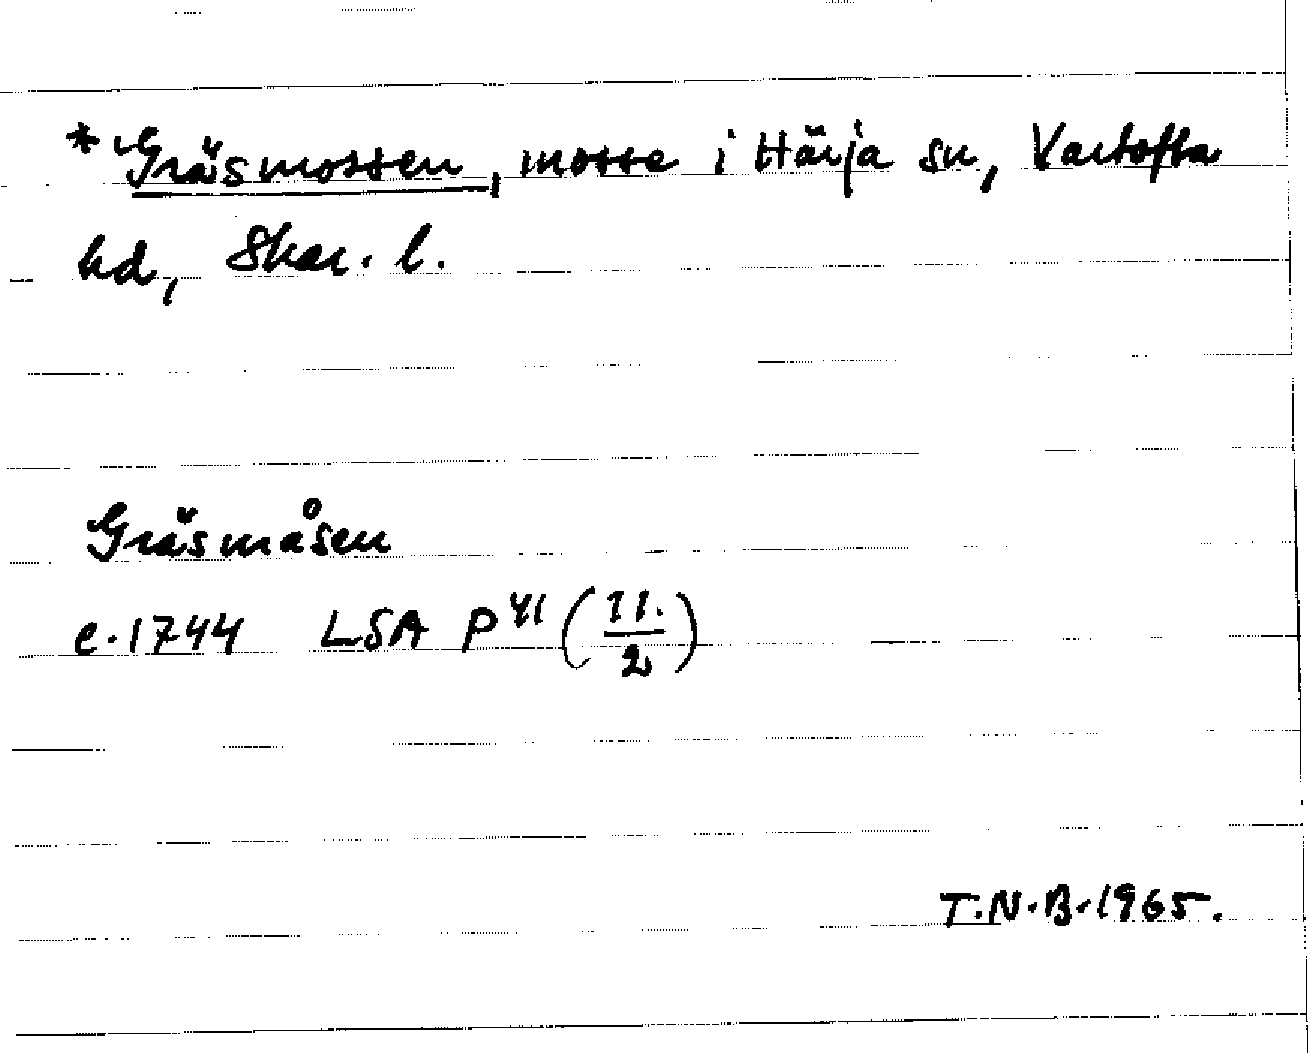 *Gräsmossen, mosse i Härja sn, Vartofta
hd, Skar. l.
Gräsmåsen
c. 1744 LSA P 41 (11./2)
T.N.B. 1965.